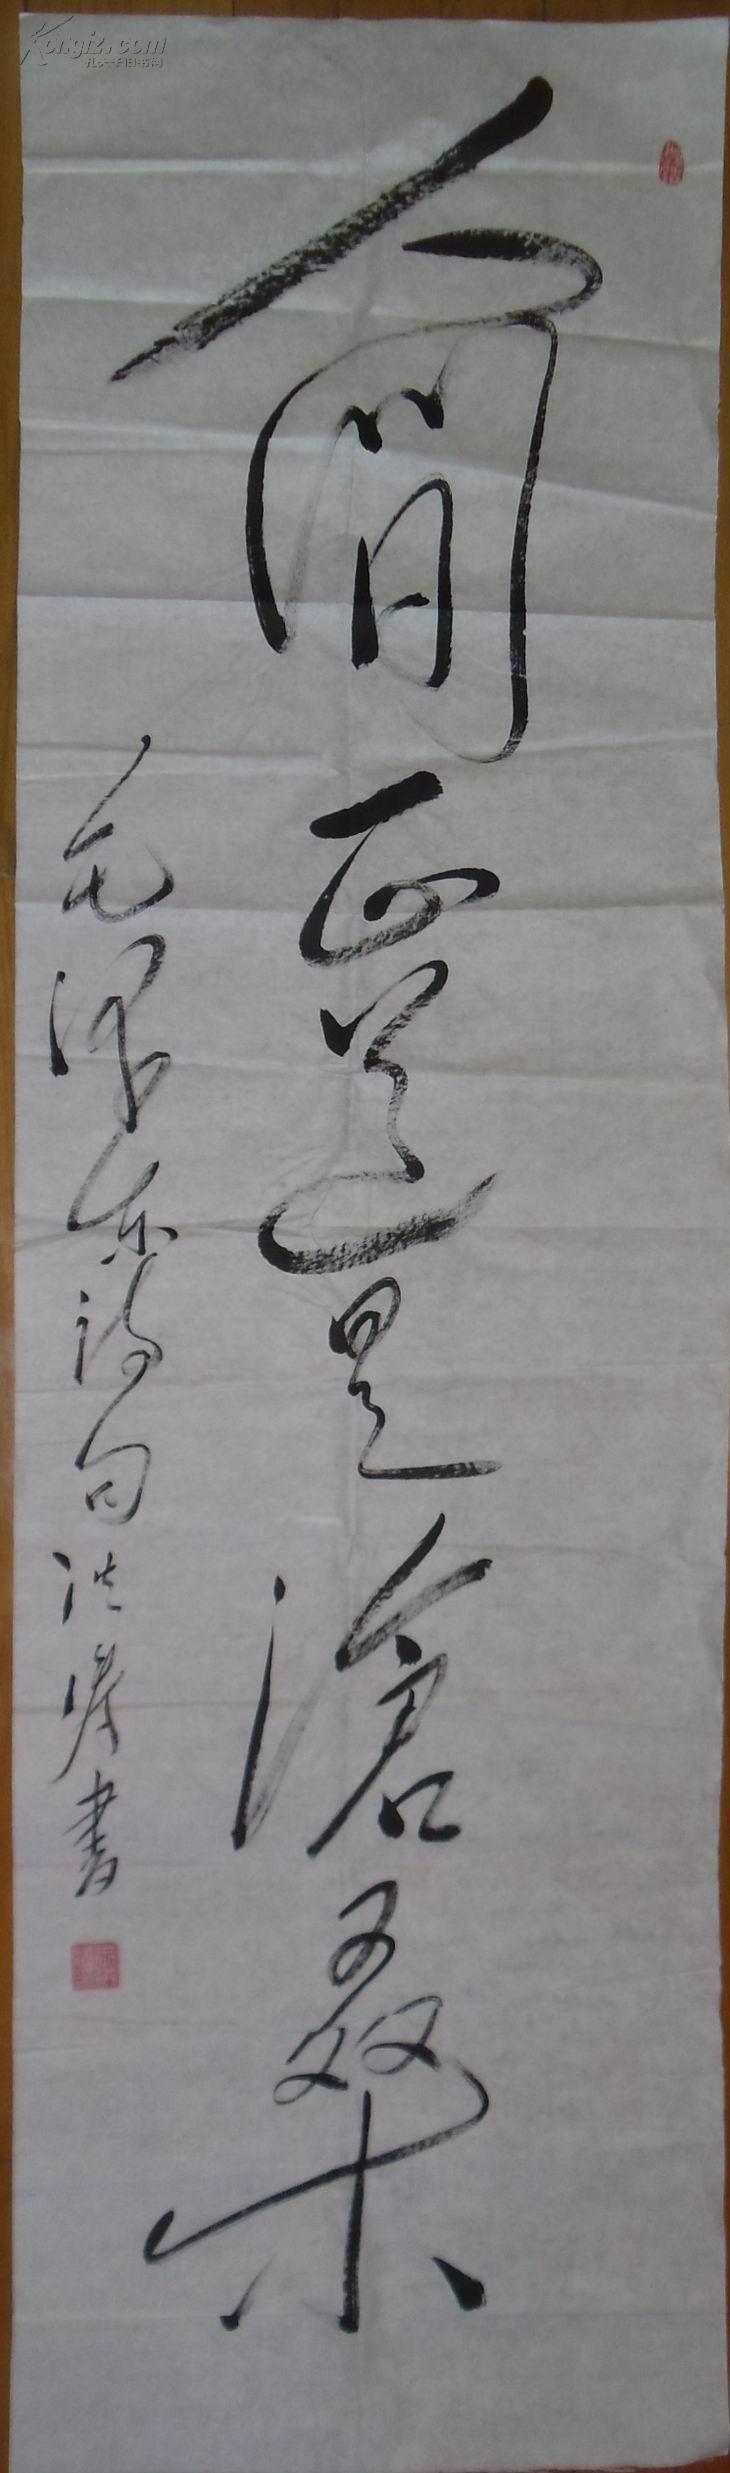 Kongfz.com
孔夫子旧书网
人间正道是滄桑
毛泽东诗句 洪涛書